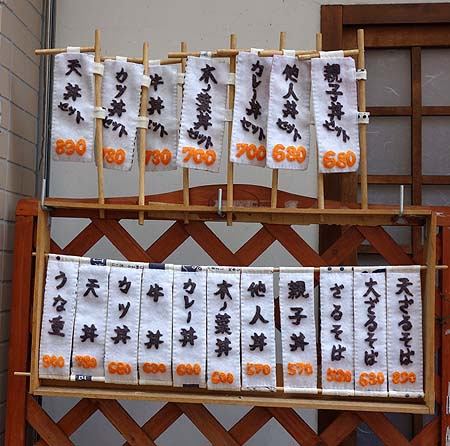 親子丼セット
680
他人丼セット
680
カレー丼セット
木の葉丼セット
700
牛丼セット
カツ丼セット
天丼セット
天ざるそば
大ざるそば
ざるそば
親子丼
570
他人丼
570
木の葉丼
カレー丼
牛丼
カツ丼
天丼
うな重